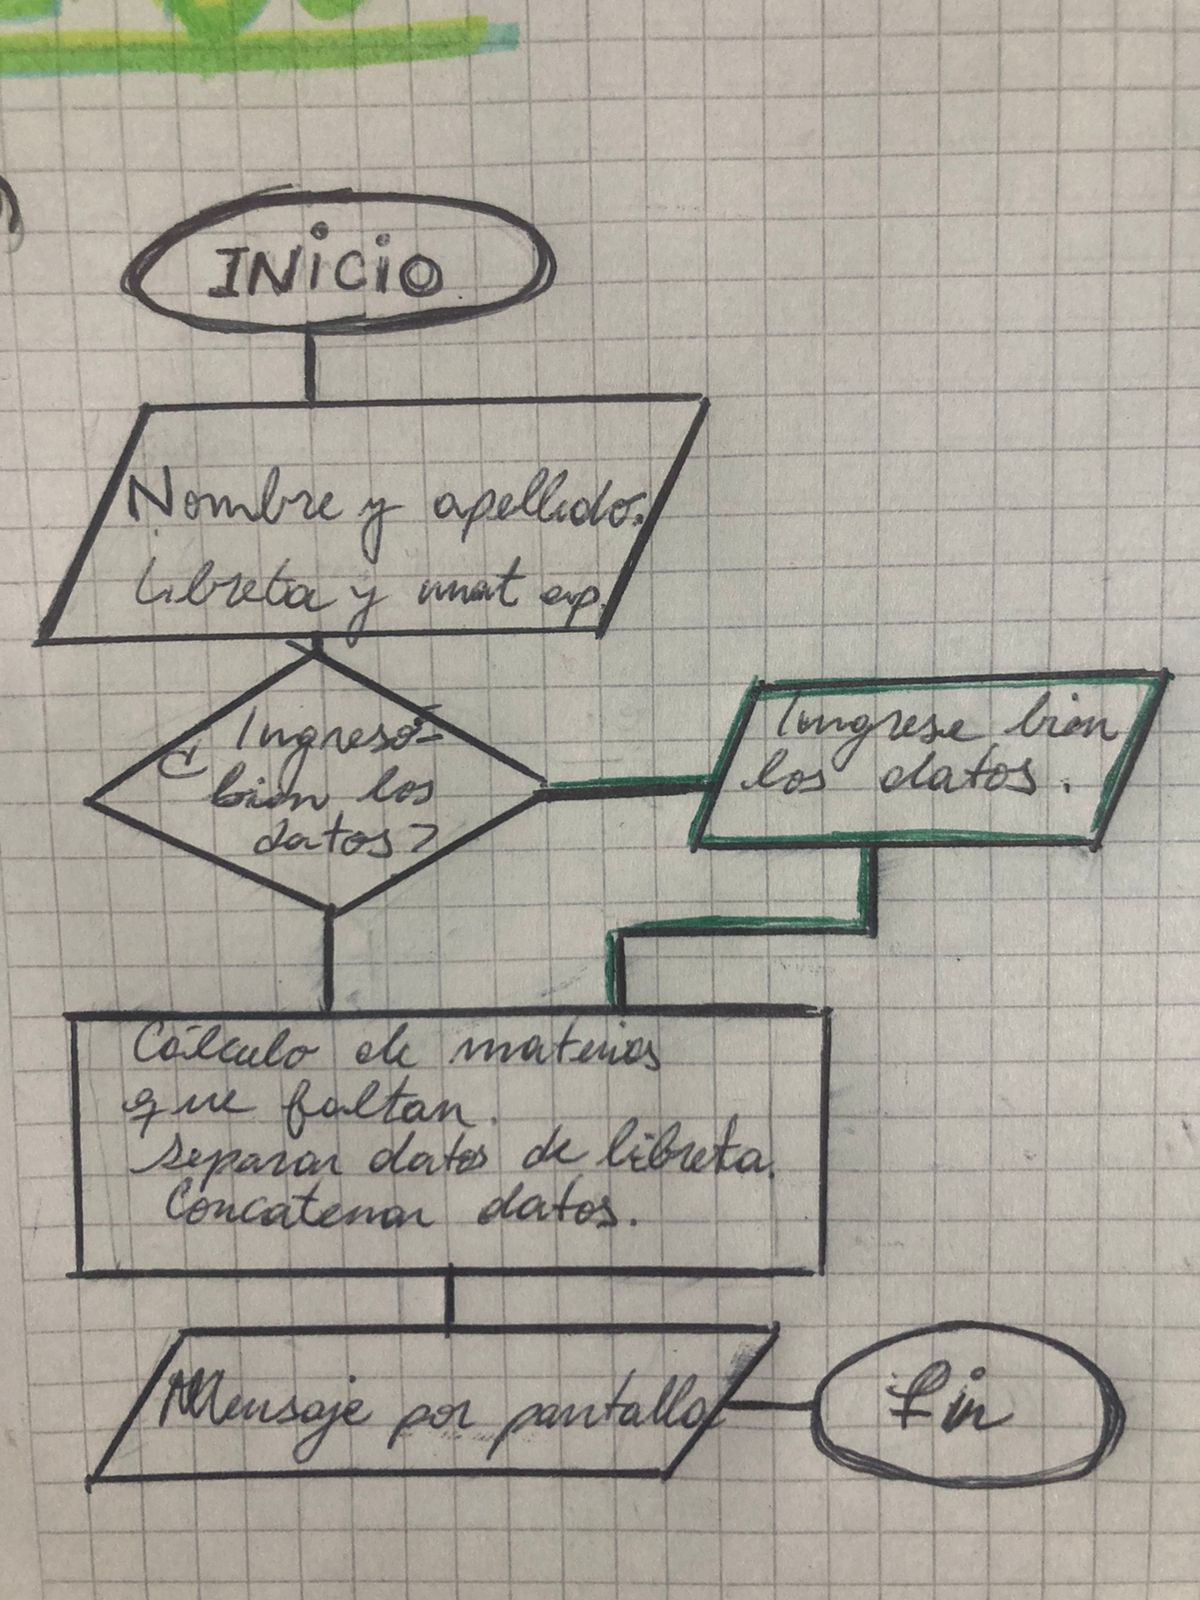 INICIO
Nombre y apellido.
Libreta y mat ap.
¿Ingresó
bien los
datos?
Ingrese bien
los datos.
Cálculo de materias
que faltan.
Separar datos de libreta.
Concatenar datos.
Mensaje por pantalla
Fin